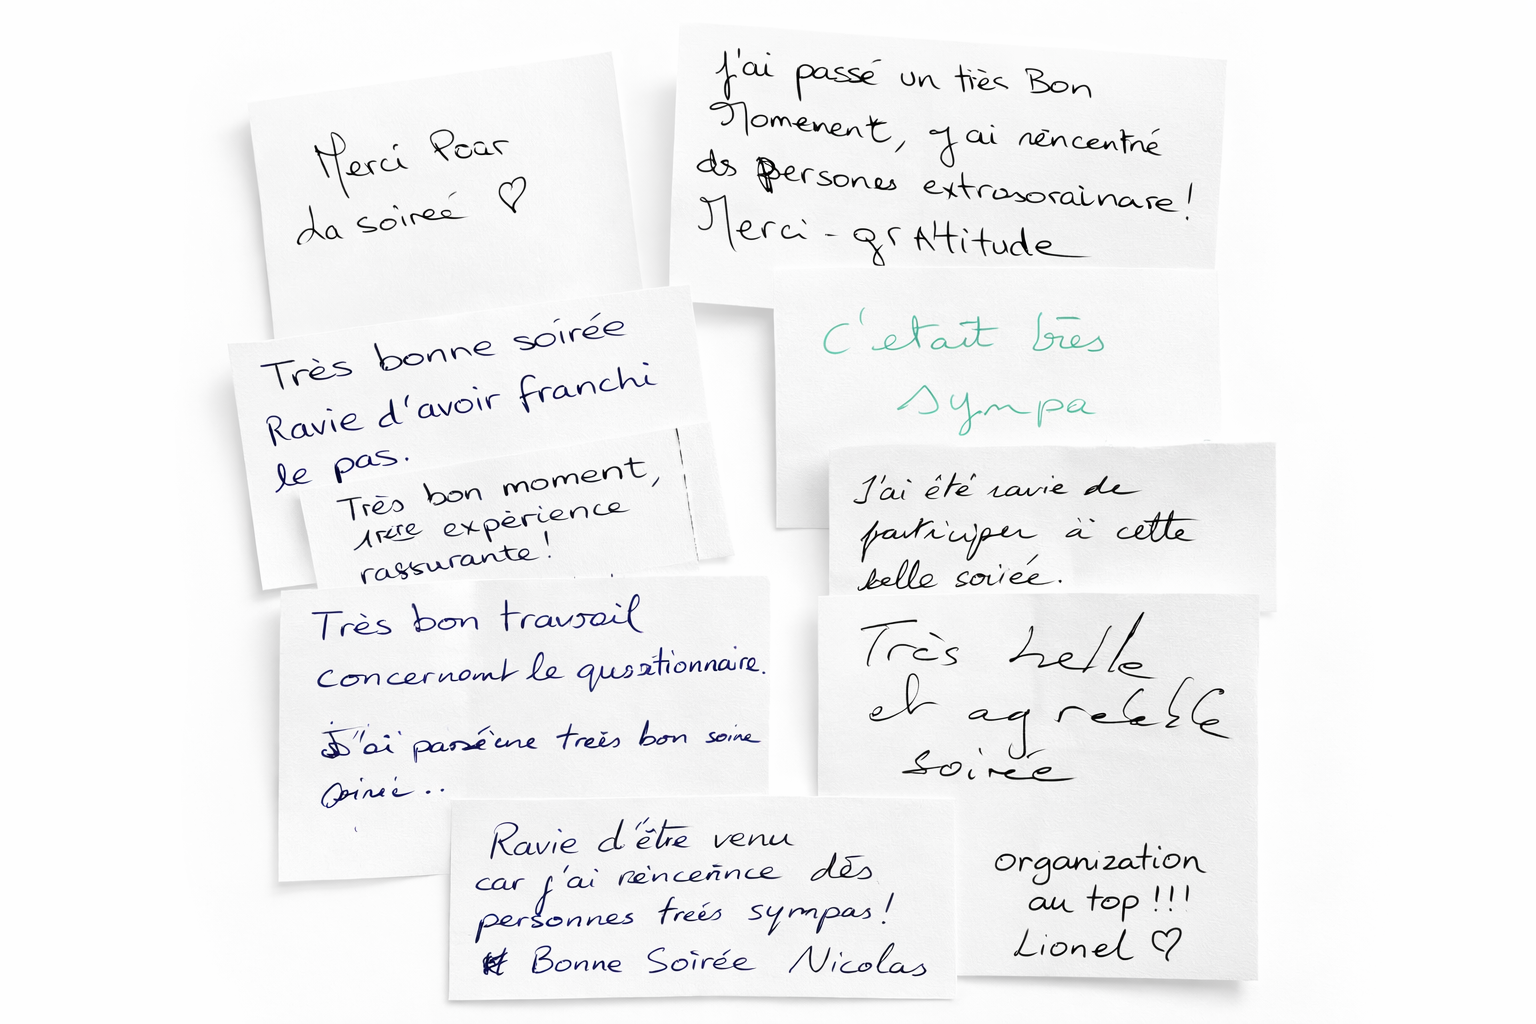 Merci Pour
La soireé ♡
J'ai passé un très Bon
Momenent, j'ai rencentré
ds persones extrasorainare!
Merci - grAtitude
Très bonne soirée
Ravie d'avoir franchi
le pas.
C'etait très
sympa
Très bon moment,
1rere expèrience
rassurante!
J'ai été ravie de
participer à cette
belle soirée.
Très bon travsail
concernant le qusstionnaire.
J'ai passé une treès bon soine
soirée..
Très belle
et agreable
soirée
organization
au top !!!
Lionel ♡
Ravie d'être venu
car j'ai dēs
personnes treés sympas!
Bonne Soirée Nicolas